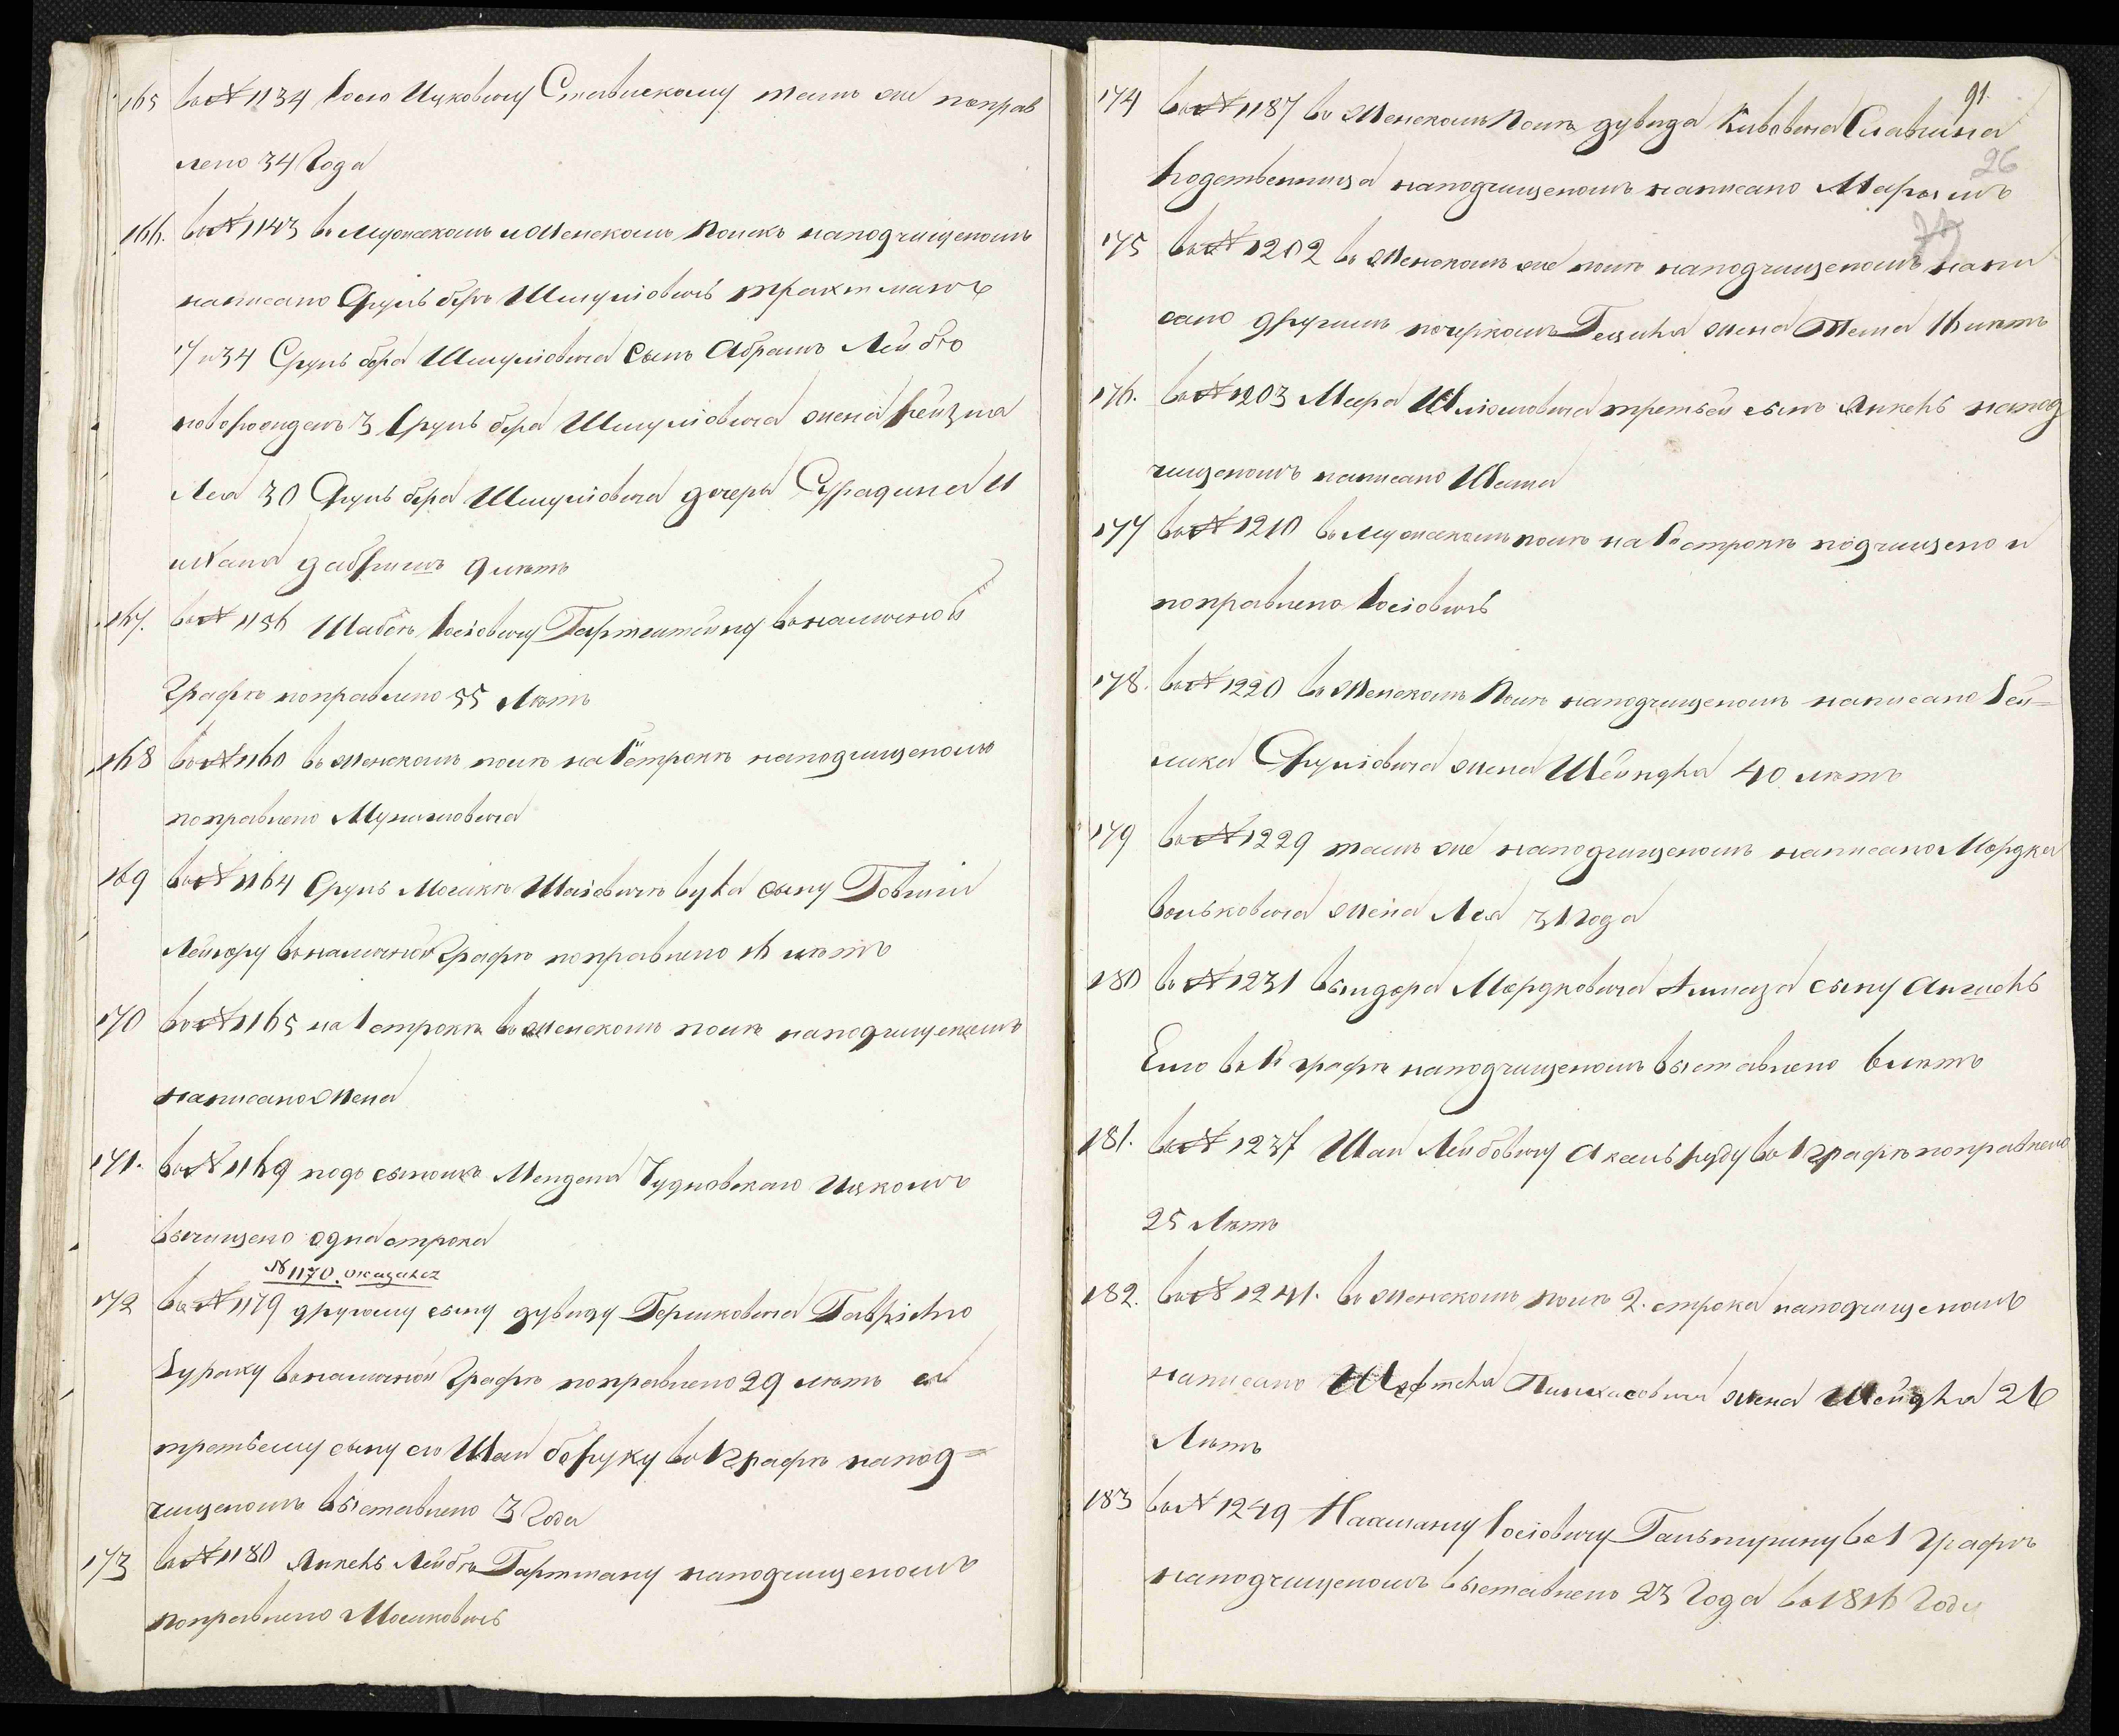 165 въ № 1134 Іосю Ицковичу Ставискому тамъ же поправ
лено 34 Года
166. въ № 1143 въ Мужескомъ и Женскомъ Полѣ наподчищеномъ
написано Сруль беръ Шмуліовичъ трахтманъ
17 и 34 Сруль бера Шмуліовича Сынъ Абрамъ Лейбъ
новорожденъ 3 Сруль бера Шмуліовича жена Рейзла
Лея 30 Сруль бера Шмуліовича дочеры Сурадина 11
и Хана добришъ 9 лѣтъ
167. въ № 1156 Шабсѣ Іосіовичу Гартштейну въ наличной
Графѣ поправлено 55 Лѣтъ
168 въ № 1160 въ женскомъ полѣ на 1й строкѣ наподчищеномъ
поправлено
169 въ № 1164 Сруль Мошкѣ Шаіовичѣ сыну
Лейзеру въ наличной Графѣ поправлено 16 лѣтъ
170 въ № 1165 на 1 строкѣ въ женскомъ полѣ наподчищеномъ
написано Жена
171. въ № 1169 подъ сыномъ Мендела Чудновскаго Ицкомъ
вычищено одна строка
№ 1170.
172 въ № 1179 другому сыну дувиду Гершковича Гаврiелю
Бураку въ наличной Графѣ поправлено 29 лѣтъ а
третьему сыну его Шаи боруку въ 1 Графѣ напод=
чищеномъ выставлено 3 Года
173 въ № 1180 Янкель Лейбѣ Гартману наподчищеномъ
поправлено Мошковичъ
91.
174 въ № 1187 въ Женскомъ Полѣ дувида Кивовича Славина
Родственница наподчищеномъ написано Марьямъ
26
175 въ № 1202 въ Женскомъ же полѣ наподчищеномъ напи
сано другимъ почеркомъ Гецика жена 16 лѣтъ
176. въ № 1203 Меера Шліомовича третьей сынъ Янкель напод
чищеномъ написано Шама
177 въ № 1210 въ Мужескомъ полѣ на 1й строкѣ подчищено и
поправлено Іосіовичъ
178. въ № 1220 въ Женскомъ Полѣ наподчищеномъ написано Бей=
лика Сруліовича жена Шейндля 40 лѣтъ
179 въ № 1229 тамъ же наподчищеномъ написано Мордка
Вольковича жена Лея 31 года
180 въ № 1231 Мордковича сыну Аншель
въ 1й графѣ наподчищеномъ выставлено 6 лѣтъ
181. въ № 1237 Шаи Лейбовичу въ 1 графѣ поправлено
25 Лѣтъ
182. въ № 1241. въ Женскомъ полѣ 2. строка наподчищеномъ
написано Шефтеля Пинхасовича жена Шейндля 26
Лѣтъ
183 въ № 1249 Нахману Іосіовичу Гальперину въ 1 графѣ
наподчищеномъ выставлено 23 Года въ 1816 Году